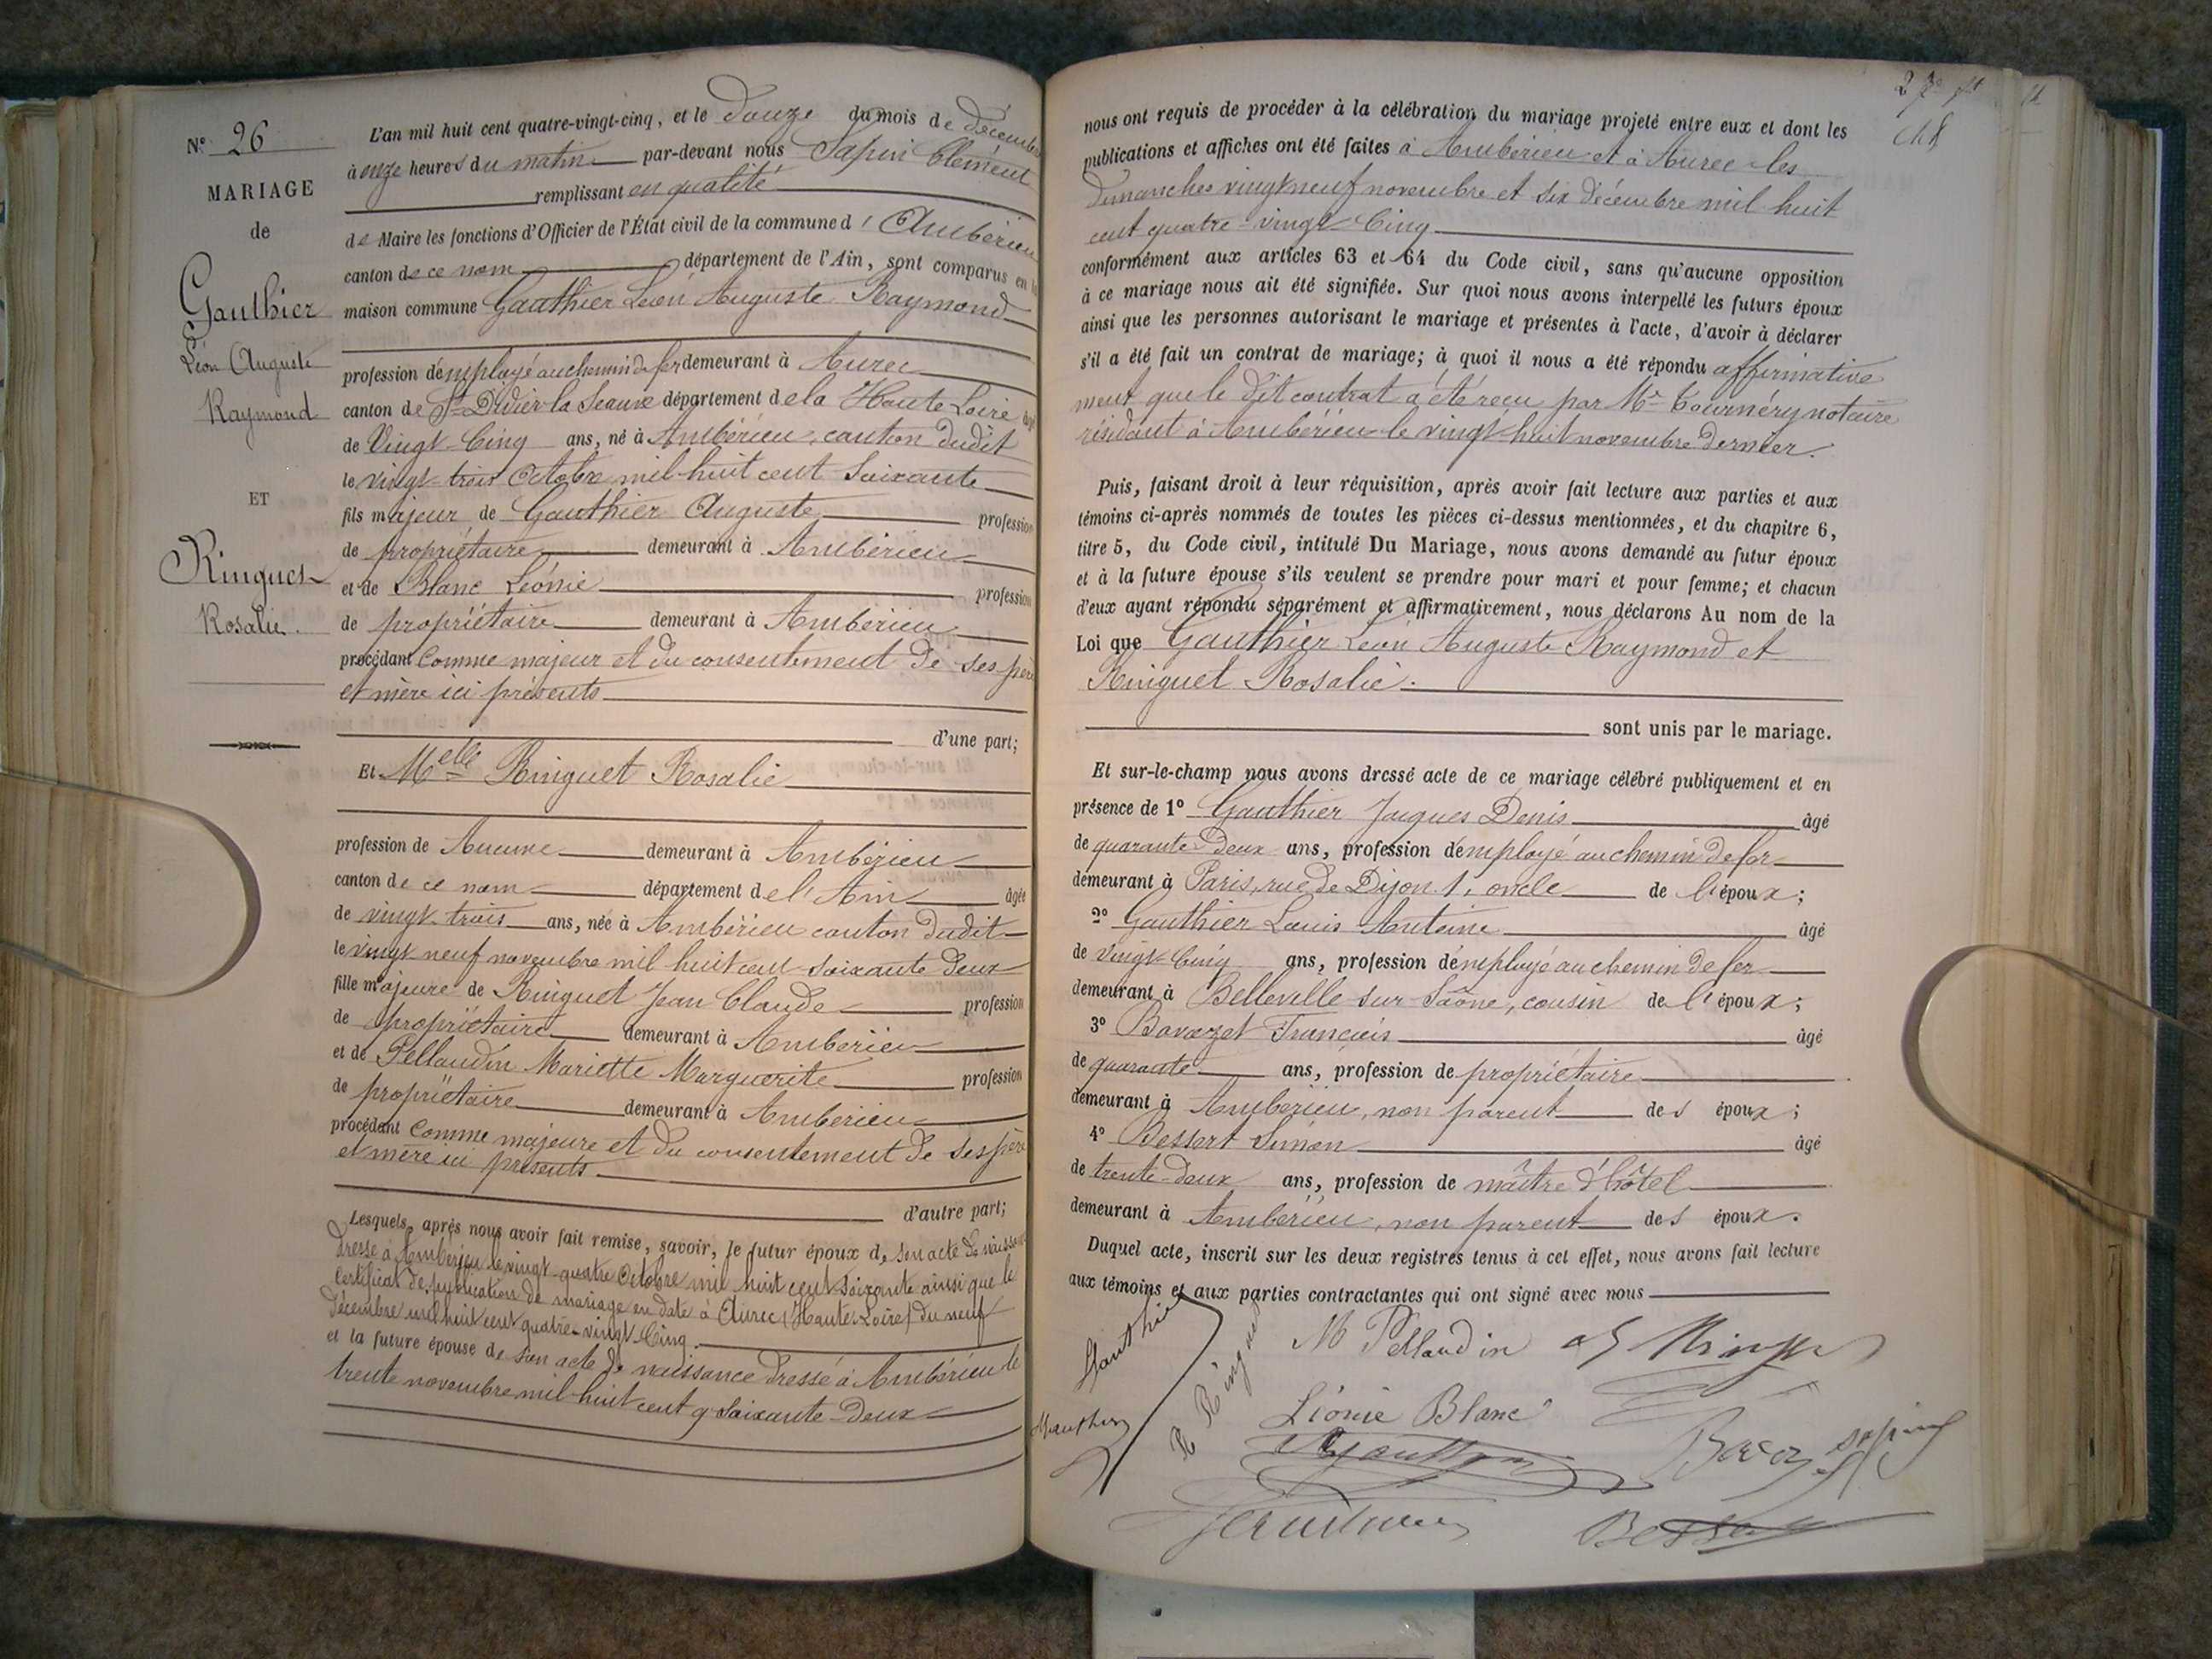 Nº 26
MARIAGE
de
Gauthier
Léon Auguste
Raymond
ET
Ringuet
Rosalie.
L'an mil huit cent quatre-vingt-cinq, et le Douze du mois de décembre
à onze heures du matin par-devant nous Sapin Clément
remplissant en qualité
de Maire les fonctions d'Officier de l'État civil de la commune d'Ambérieu
canton de ce nom département de l'Ain, sont comparus en la
maison commune Gauthier Léon Auguste Raymond
profession d'employé au chemin de fer demeurant à Aurec
canton de St Didier la Seauve département de la Haute Loire âgé
de Vingt Cinq ans, né à Ambérieu, canton dudit
le vingt trois Octobre mil huit cent Soixante
fils majeur de Gauthier Auguste profession
de propriétaire demeurant à Ambérieu
et de Blanc Léonie profession
de propriétaire demeurant à Ambérieu
procédant Comme majeur et du consentement de ses père
et mère ici présents
d'une part;
Et Melle Ringuet Rosalie
profession de Aucune demeurant à Ambérieu
canton de ce nom département de l'Ain âgée
de vingt trois ans, née à Ambérieu canton dudit
le vingt neuf novembre mil huit cent soixante deux
fille majeure de Ringuet Jean Claude profession
de propriétaire demeurant à Ambérieu
et de Pellaudin Mariette Marguerite profession
de propriétaire demeurant à Ambérieu
procédant Comme majeure et du consentement de ses père
et mère ici présents
d'autre part;
Lesquels, après nous avoir fait remise, savoir, le futur époux d, son acte de naissance
dressé à Ambérieu le vingt-quatre Octobre mil huit cent soixante ainsi que le
Certificat de publication de mariage en date à Aurec (Haute-Loire) du neuf
décembre mil huit cent quatre-vingt-Cinq.
et la future épouse de son acte de naissance dressé à Ambérieu le
trente novembre mil huit cent q soixante-deux
nous ont requis de procéder à la célébration du mariage projeté entre eux et dont les
publications et affiches ont été faites à Ambérieu et à Aurec les
Dimanches vingt neuf novembre et six décembre mil huit
cent quatre-vingt-Cinq
conformément aux articles 63 et 64 du Code civil, sans qu'aucune opposition
à ce mariage nous ait été signifiée. Sur quoi nous avons interpellé les futurs époux
ainsi que les personnes autorisant le mariage et présentes à l'acte, d'avoir à déclarer
s'il a été fait un contrat de mariage; à quoi il nous a été répondu affirmative
ment que le dit contrat a été reçu par Mr Tournéry notaire
résidant à Ambérieu le vingt-huit novembre dernier.
Puis, faisant droit à leur réquisition, après avoir fait lecture aux parties et aux
témoins ci-après nommés de toutes les pièces ci-dessus mentionnées, et du chapitre 6,
titre 5, du Code civil, intitulé Du Mariage, nous avons demandé au futur époux
et à la future épouse s'ils veulent se prendre pour mari et pour femme; et chacun
d'eux ayant répondu séparément et affirmativement, nous déclarons Au nom de la
Loi que Gauthier Léon Auguste Raymond et
Ringuet Rosalie.
sont unis par le mariage.
Et sur-le-champ nous avons dressé acte de ce mariage célébré publiquement et en
présence de 1º Gauthier Jacques Denis âgé
de quarante-Deux ans, profession d'employé au chemin de fer
demeurant à Paris, rue de Dijon 1, oncle de l'époux;
2º Gauthier Louis Antoine âgé
de Vingt-Cinq ans, profession d'employé au chemin de fer
demeurant à Belleville-sur-Saône, cousin de l'époux;
3º Bavozet François âgé
de quarante ans, profession de propriétaire
demeurant à Ambérieu, non parent des époux;
4º Bessert Simon âgé
de trente-deux ans, profession de maître d'hôtel
demeurant à Ambérieu, non parent des époux.
Duquel acte, inscrit sur les deux registres tenus à cet effet, nous avons fait lecture
aux témoins et aux parties contractantes qui ont signé avec nous
Gauthier
R Ringuet
M Pellaudin
Gauthier
Léonie Blanc